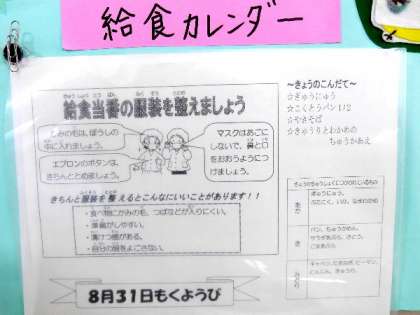 給食カレンダー
きゅうしょくとうばん ふくそう ととの
給食当番の服装を整えましょう
かみの毛は、ぼうしの
中に入れましょう。
エプロンのボタンは、
きちんととめましょう。
マスクはあごに
しないで、鼻と口
をおおうようにつ
けましょう。
きちんと服装を整えるとこんなにいいことがあります！！
・食べ物にかみの毛、つばなどが入りにくい。
・準備がしやすい。
・清けつ感がある。
・自分の服をよごさない。
8月31日もくようび
～きょうのこんだて～
☆ぎゅうにゅう
☆こくとうパン1/2
☆やきそば
☆きゅうりとわかめの
ちゅうかあえ
きょうのきゅうしょくにつかわれているもの
あか
ぎゅうにゅう、
ぶたにく、いか、なまわかめ
き
パン、ちゅうかめん、
サラダあぶら、さとう、
ごまあぶら
みどり
キャベツ、たまねぎ、ピーマン、
にんじん、きゅうり、